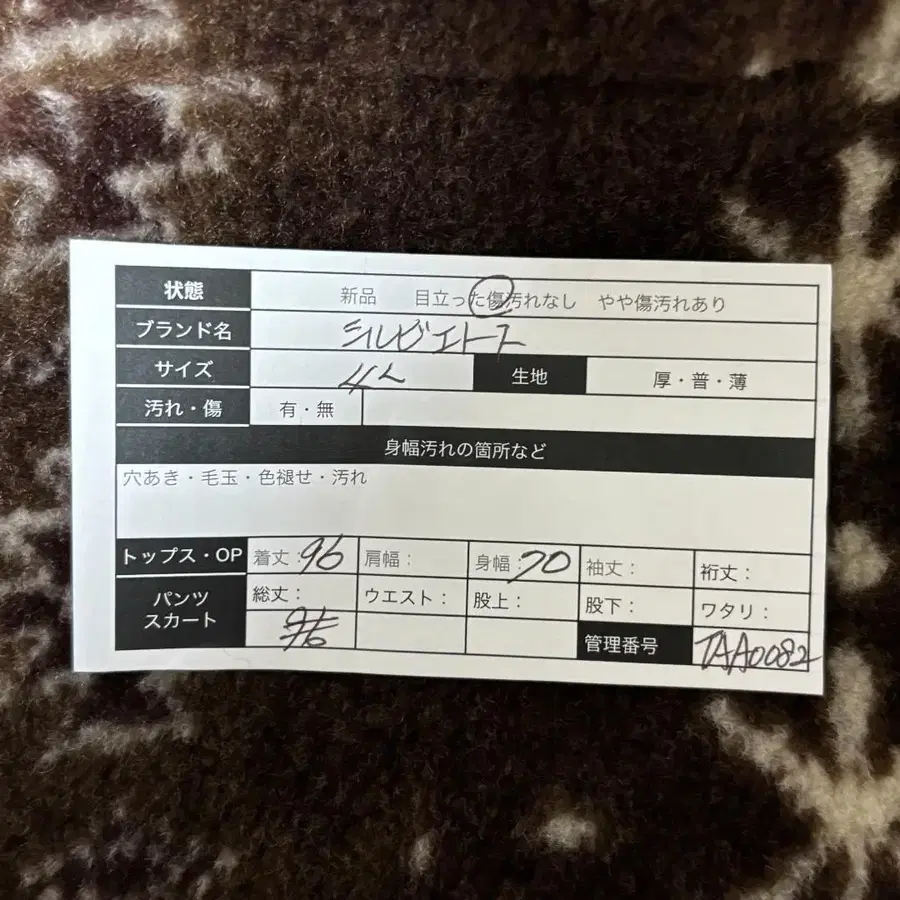 状態 新品 目立った傷汚れなし やや傷汚れあり
ブランド名 シルビエトース
サイズ 4L 生地 厚・普・薄
汚れ・傷 有・無
身幅汚れの箇所など
穴あき・毛玉・色褪せ・汚れ
トップス・OP 着丈：96 肩幅： 身幅：70 袖丈： 裄丈：
パンツ スカート 総丈： ウエスト： 股上： 股下： ワタリ：
管理番号 TAA0082